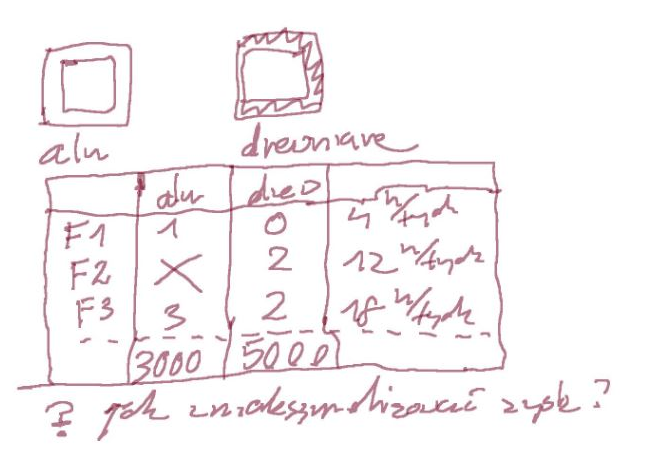 alu drewniane
alu drew
F1 1 0 4 h/tydz
F2 X 2 12 h/tydz
F3 3 2 18 h/tydz
3000 5000
? jak zmaksymalizować zysk?